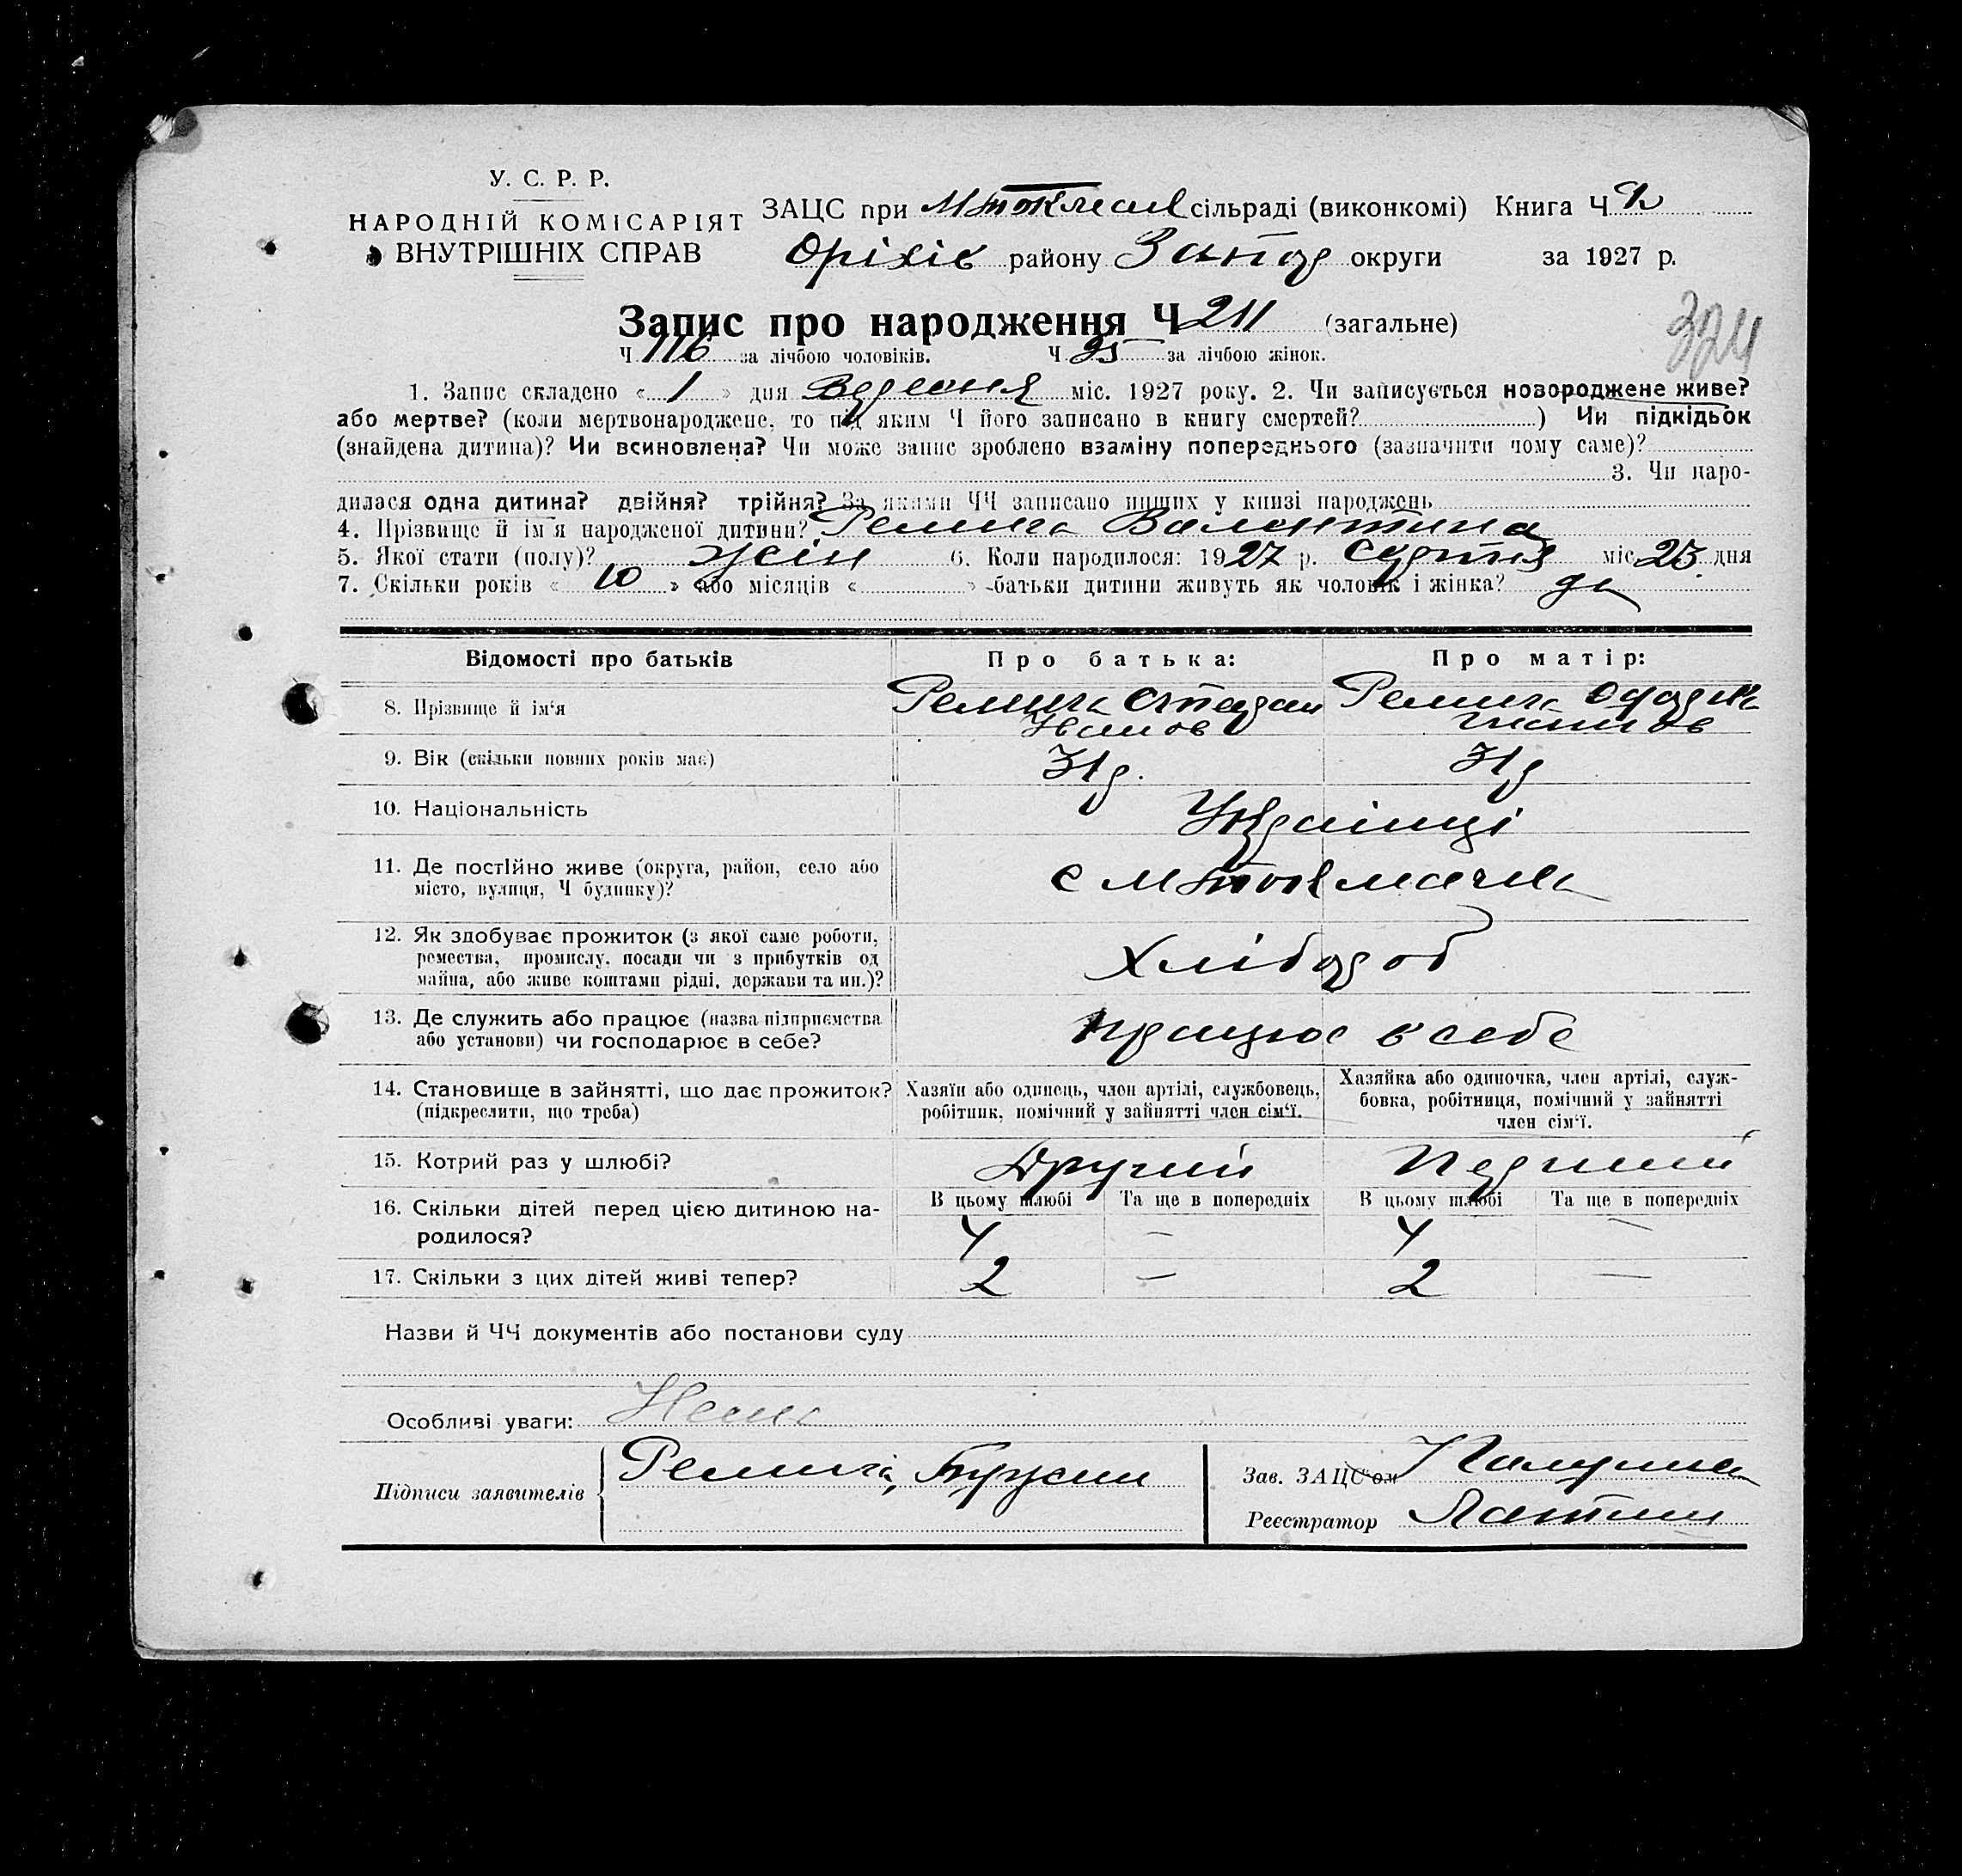 У. С. Р. Р.
НАРОДНІЙ КОМІСАРІЯТ
ВНУТРІШНІХ СПРАВ
ЗАЦС при сільраді (виконкомі) Книга Ч 2
Оріхів району Запор округи за 1927 р.
Запис про народження Ч 211 (загальне)
324
Ч 116 за лічбою чоловіків. Ч 95 за лічбою жінок.
1. Запис складено « 1 » дня Вересня міс. 1927 року. 2. Чи записується новороджене живе?
або мертве? (коли мертвонароджене, то під яким Ч його записано в книгу смертей? ) Чи підкідьок
(знайдена дитина)? Чи всиновлена? Чи може запис зроблено взаміну попереднього (зазначити чому саме)?
3. Чи наро-
дилася одна дитина? двійня? трійня? За якими ЧЧ записано инших у книзі народжень
4. Прізвище й ім'я народженої дитини? Ремига Валентина
5. Якої стати (полу)? жін 6. Коли народилося: 1927 р. Серпня міс. 25 дня
7. Скільки років « 10 » або місяців « » батьки дитини живуть як чоловік і жінка? да
Відомості про батьків Про батька: Про матір:
8. Прізвище й ім'я Ремига Степан Ремига
Иванов
9. Вік (скільки повних років має) 31 р. 31 р
10. Національність Українці
11. Де постійно живе (округа, район, село або
місто, вулиця, Ч будинку)?
с М Токмачка
12. Як здобуває прожиток (з якої саме роботи,
ремества, промислу, посади чи з прибутків од
майна, або живе коштами рідні, держави та ин.)?
Хлібороб
13. Де служить або працює (назва підприємства
або установи) чи господарює в себе?
працює в себе
14. Становище в зайнятті, що дає прожиток?
(підкреслити, що треба)
Хазяїн або одинець, член артілі, службовець,
робітник, помічний у зайнятті член сім'ї.
Хазяйка або одиночка, член артілі, служ-
бовка, робітниця, помічний у зайнятті
член сім'ї.
15. Котрий раз у шлюбі? Другий Перший
В цьому шлюбі Та ще в попередніх В цьому шлюбі Та ще в попередніх
16. Скільки дітей перед цією дитиною на-
родилося?
4 — 4 —
17. Скільки з цих дітей живі тепер? 2 — 2 —
Назви й ЧЧ документів або постанови суду
Особливі уваги: Нема
Підписи заявителів Ремига,
Зав. ЗАЦС'ом
Реєстратор